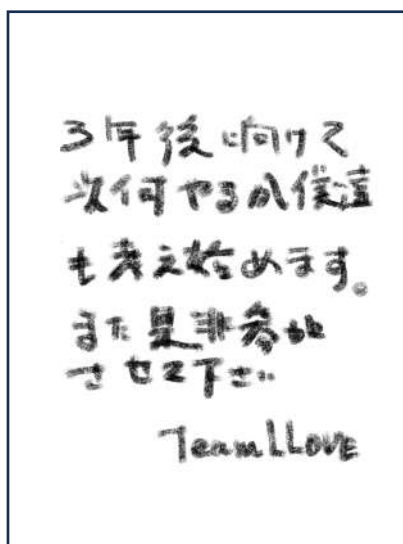 3年後に向けて
次何やるか僕達
も考え始めます。
また是非参加
させて下さい
Team LLOVE